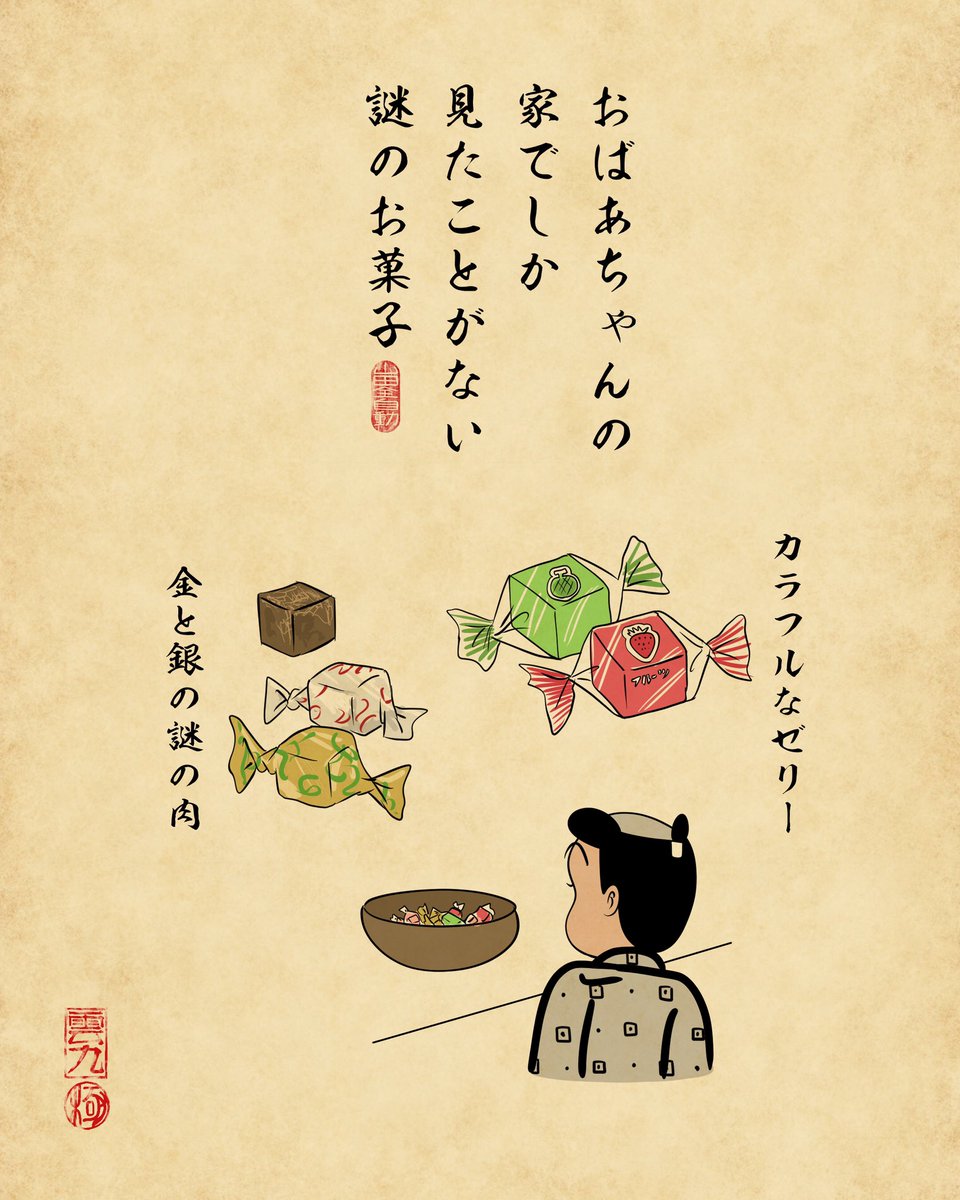 おばあちゃんの
家でしか
見たことがない
謎のお菓子
カラフルなゼリー
フルーツ
金と銀の謎の肉